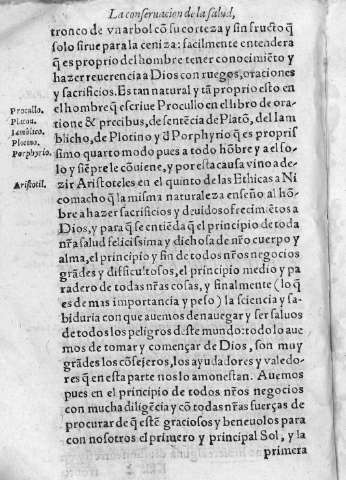 La conseruacion de la salud,
tronco de vn arbol cõ su corteza y sin fructo q̃
solo sirue para la ceniza: facilmente entendera
q̃ es proprio del hombre tener conocimiẽto y
hazer reuerencia a Dios con ruegos, oraciones
y sacrificios. Es tan natural y tã proprio esto en
el hombre q̃ escriue Procullo en el libro de ora-
tione & precibus, de sentẽcia de Platõ, del Iam
blicho, de Plotino y d̃ Porphyrio q̃ es propris
simo quarto modo pues a todo hõbre y a el so-
lo y siẽpre le cõuiene, y por esta causa vino a de-
zir Aristoteles en el quinto de las Ethicas a Ni
comacho q̃ la misma naturaleza enseño al hõ-
bre a hazer sacrificios y deuidos ofrecimiẽtos a
Dios, y para q̃ se entiẽda q̃ el principio de toda
nr̃a salud felicissima y dichosa de nr̃o cuerpo y
alma, el principio y fin de todos nr̃os negocios
grãdes y difficultosos, el principio medio y pa
radero de todas nr̃as cosas, y finalmente (lo q̃
es de mas importancia y peso) la sciencia y sa-
biduria con que auemos de nauegar y ser saluos
de todos los peligros deste mundo: todo lo aue
mos de tomar y començar de Dios, son muy
grãdes los cõsejeros, los ayudadores y valedo-
res q̃ en esta parte nos lo amonestan. Auemos
pues en el principio de todos nr̃os negocios
con mucha diligẽcia y cõ todas nr̃as fuerças de
procurar de q̃ estẽ graciosos y beneuolos para
con nosotros el primero y principal Sol, y la
primera
Procullo.
Platon.
Iamblico.
Plotino.
Porphyrio.
Aristotil.